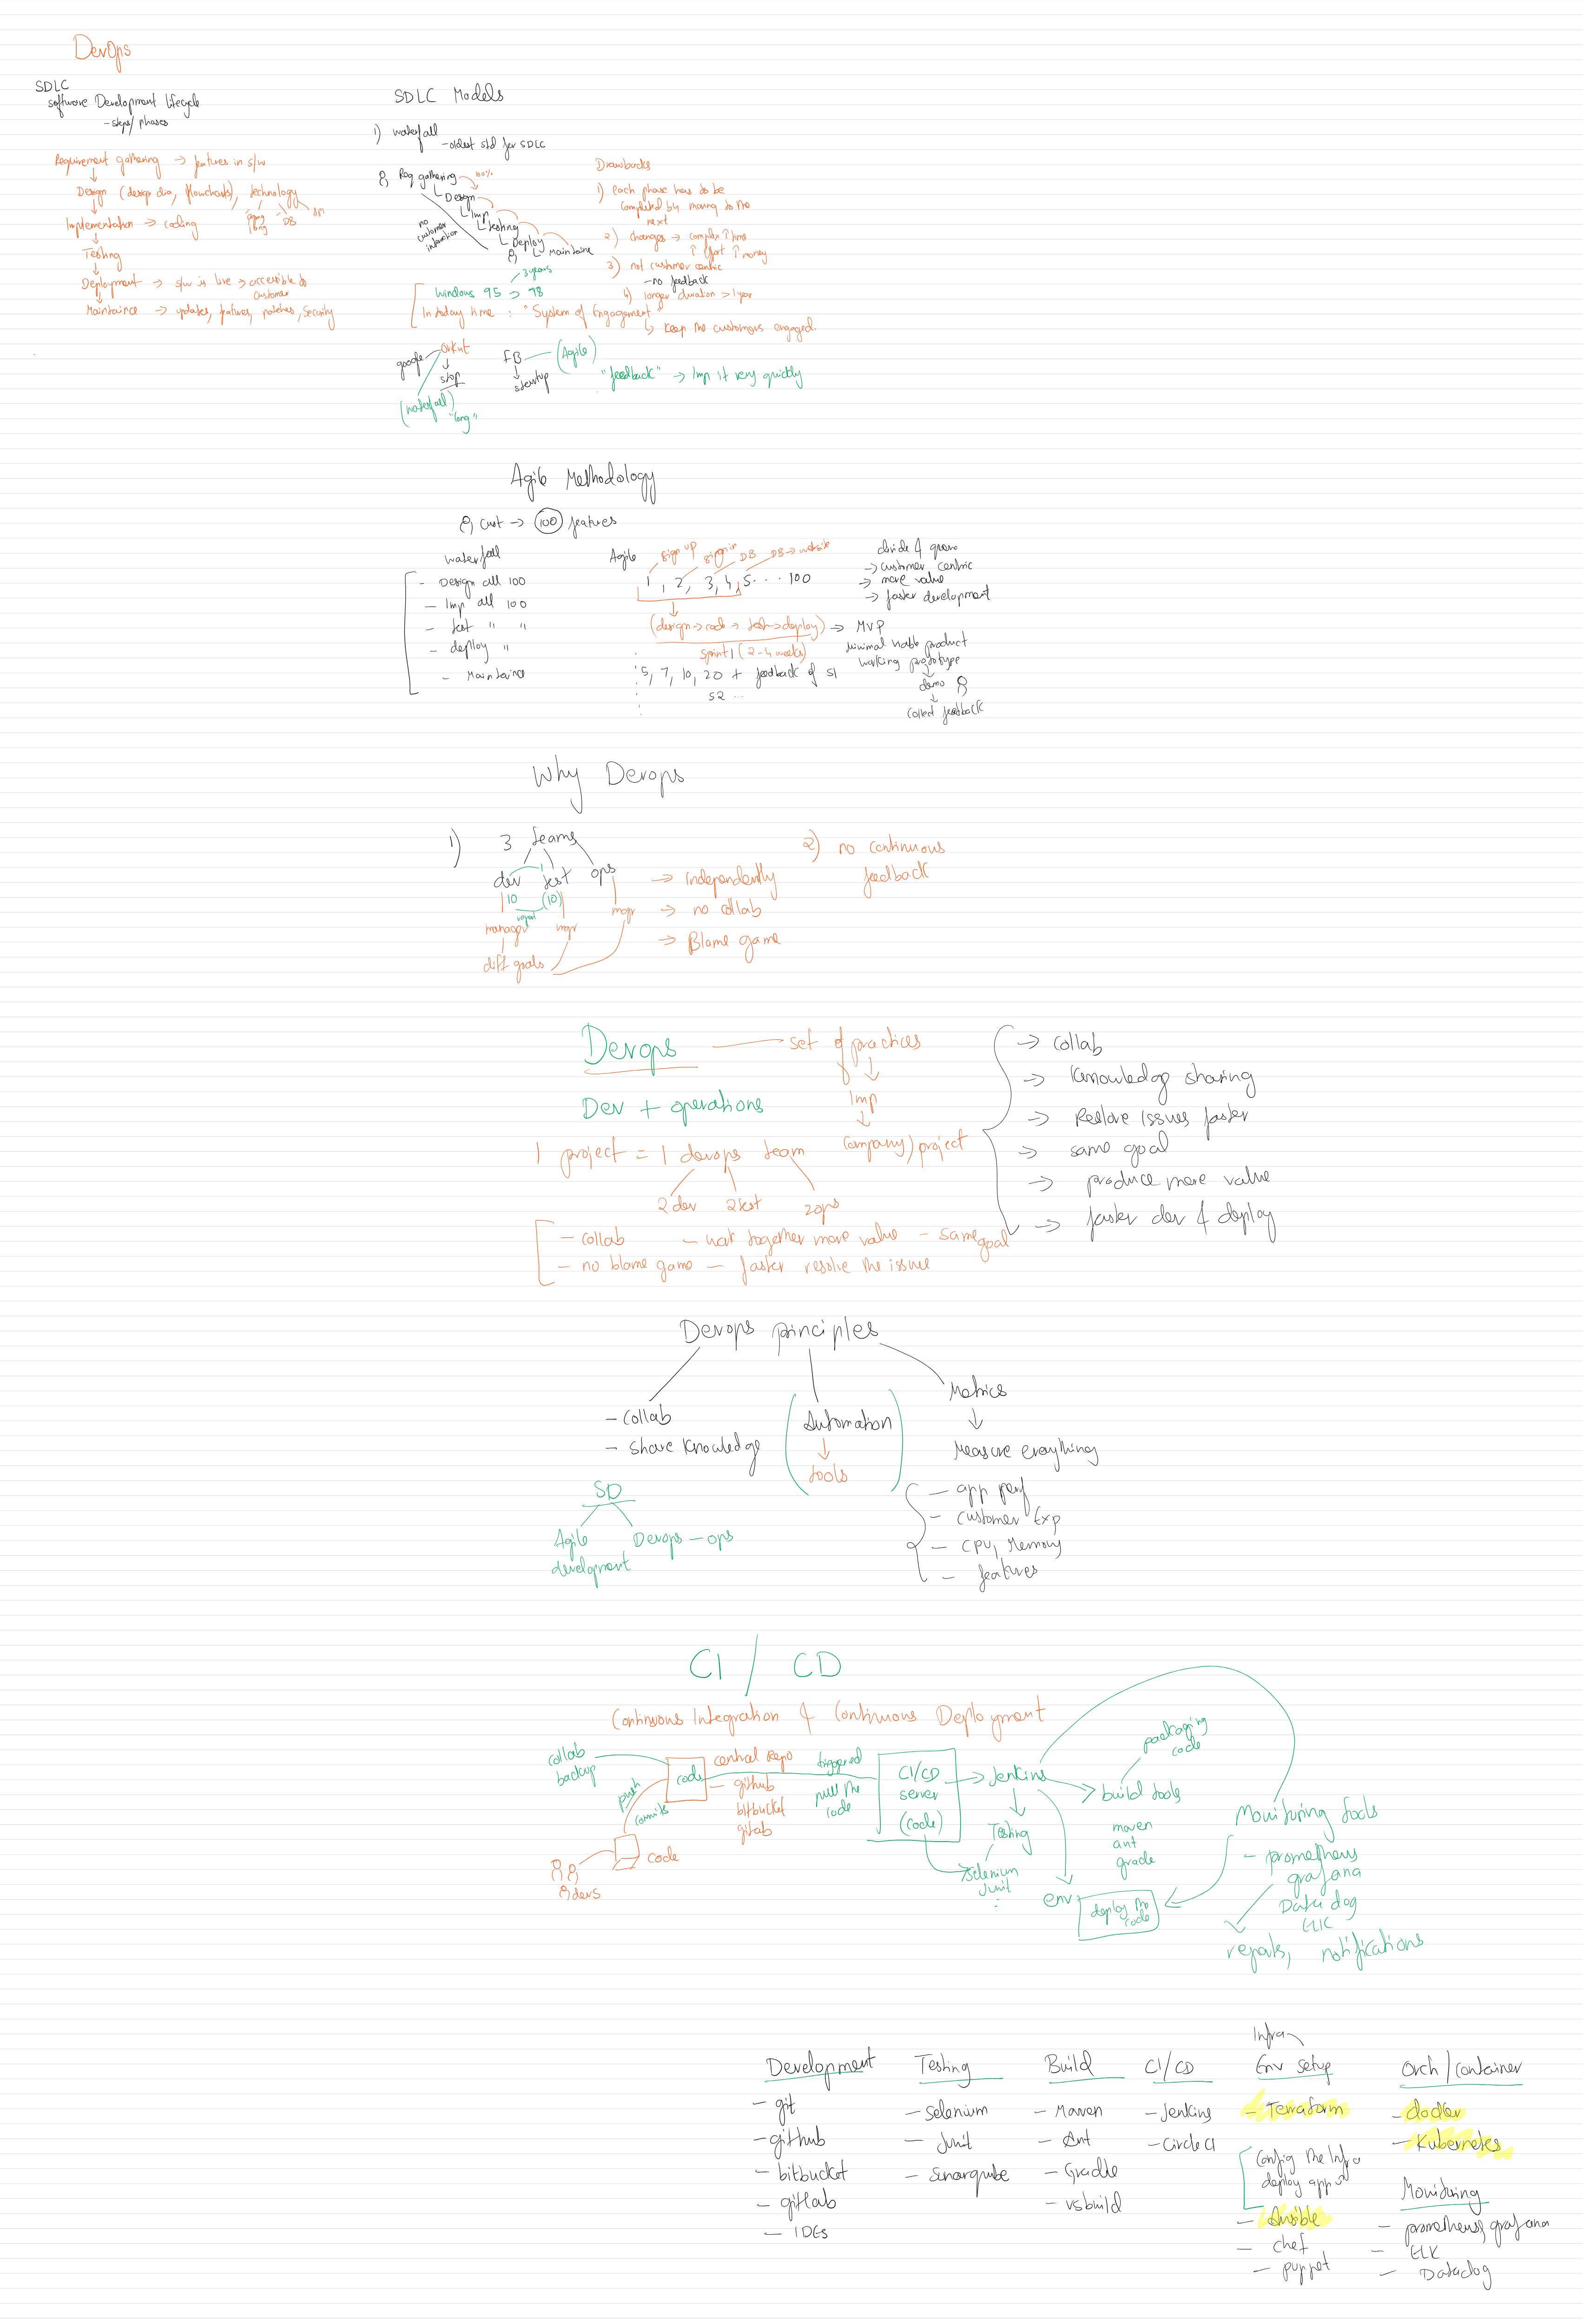 DevOps
SDLC
software Development lifecycle
- steps/phases
Requirement gathering → features in s/w
Design (design dia, flowcharts), technology
prog lang DB API
Implementation → coding
Testing
Deployment → s/w is live → accessible to
customer
Maintaince → updates, features, patches, security
SDLC Models
1) waterfall
- oldest std for SDLC
Req gathering 100%
Design
Imp
testing
Deploy
Maintaine
no customer interaction
Drawbacks
1) each phase has to be
completed by moving to the
next
2) changes → complex ↑ time
↑ effort ↑ money
3) not customer centric
- no feedback
4) longer duration > 1 year
3 years
Windows 95 → 98
In today time : "System of Engagement"
↳ keep the customers engaged.
google Orkut
stop
(waterfall)
"long"
FB (Agile)
startup
"feedback" → Imp it very quickly
Agile Methodology
cust → 100 features
waterfall
- Design all 100
- Imp all 100
- test " "
- deploy "
- Maintaince
Agile sign up sign in DB DB → website
1, 2, 3, 4, 5 . . . 100
(design → code → test → deploy) → MVP
sprint 1 (2-4 weeks)
5, 7, 10, 20 + feedback of S1
S2 ...
divide & grow
→ customer centric
→ more value
→ faster development
minimal viable product
working prototype
demo
collect feedback
Why Devops
1) 3 teams
dev test ops
10 (10)
manager mgr mgr
diff goals
→ independently
→ no collab
→ Blame game
2) no continuous
feedback
Devops set of practices
Imp
company/project
Dev + operations
1 project = 1 devops team
2 dev 2 test 2 ops
- collab - work together more value - same goal
- no blame game - faster resolve the issue
→ collab
→ knowledge sharing
→ Resolve issues faster
→ same goal
→ produce more value
→ faster dev & deploy
Devops principles
- collab
- share knowledge
Automation
tools
Metrics
Measure everything
- app perf
- customer Exp
- CPU, Memory
- features
SD
Agile
development
Devops - ops
CI / CD
Continuous Integration & Continuous Deployment
collab
backup
code
central Repo
- github
bitbucket
gitlab
push
commits
code
devs
triggered
pull the
code
CI/CD
server
(code)
Jenkins
Testing
selenium
Junit
:
build tools
packaging
code
maven
ant
gradle
env
deploy the
code
Monitoring tools
- prometheus
grafana
Data dog
ELK
reports, notifications
Development
- git
- github
- bitbucket
- gitlab
- IDEs
Testing
- Selenium
- Junit
- Sonarqube
Build
- Maven
- Ant
- Gradle
- vsbuild
CI/CD
- Jenkins
- Circle CI
Infra
Env setup
- Terraform
Config the Infra
deploy apps
- Ansible
- chef
- puppet
Orch/container
- docker
- Kubernetes
Monitoring
- prometheus, grafana
- ELK
- Datadog